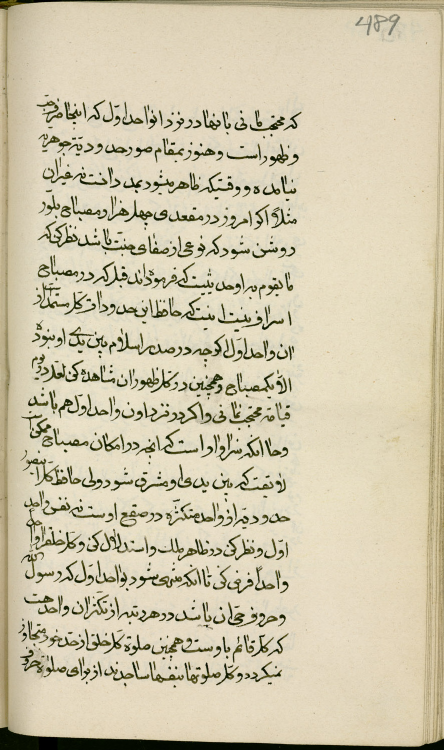 489
که محتجب مانی بانها در نزد انواحد اول که اینجا صرف
و ظهور است و هنوز بمقام صور حدودیه جوهریه
نیامده و وقتیکه ظاهر میشود بمدد ذات نه غیر ان
مثلا اگر امروز در مقعدی چهل هزار مصباح بلور
روشن شود که نوعی از صفای جنت باشد نظر کن که
ما یقوم به او حد بیت که فرموده اند قبل که در مصباح
اسراف نیست اینست که حافظ این حدودات کلا ستمد از
ان واحد اول اگرچه در صدر اسلام بین یدی او نبوده
الا یک مصباح و همچنین در کل ظهور ان مشاهده کن لعل در یوم
قیامة محتجب نمانی و اگر در نزد اون واحد اول هم باشد
و حال انکه سزاوار است که انچه در امکان مصباح ممکن
لایقست که بین یدی او مشرق شود ولی حافظ کل
حدودیه از واحد متکثره در صقع اوست نه نفس واحد
اول و نظر کن در ظاهر ملک و استدلال کن و کل خلق را
واحدا فرض کن تا انکه منتهی شود بواحد اول که رسول الله
و حروف حی ان باشد در هر رتبه از تکثر ان واحد هست
که کل قائم باوست و همچنین صلوة کل خلق از حد خود متجاوز
نمیگردد و کل صلوتها بنفسها ساجدند از برای صلوة حروف